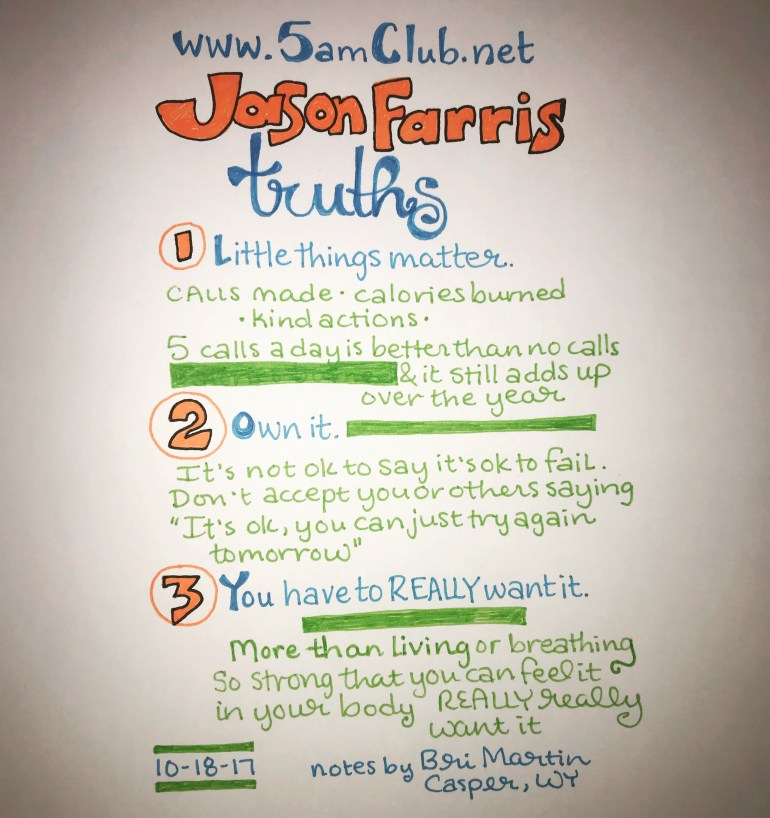 www.5amClub.net
Jason Farris
truths
1 Little things matter.
CALLS made · calories burned
· kind actions ·
5 calls a day is better than no calls
& it still adds up
over the year
2 Own it.
It's not ok to say it's ok to fail.
Don't accept you or others saying
"It's ok, you can just try again
tomorrow"
3 You have to REALLY want it.
More than living or breathing
So strong that you can feel it
in your body REALLY really
want it
10-18-17 notes by Bri Martin
Casper, WY